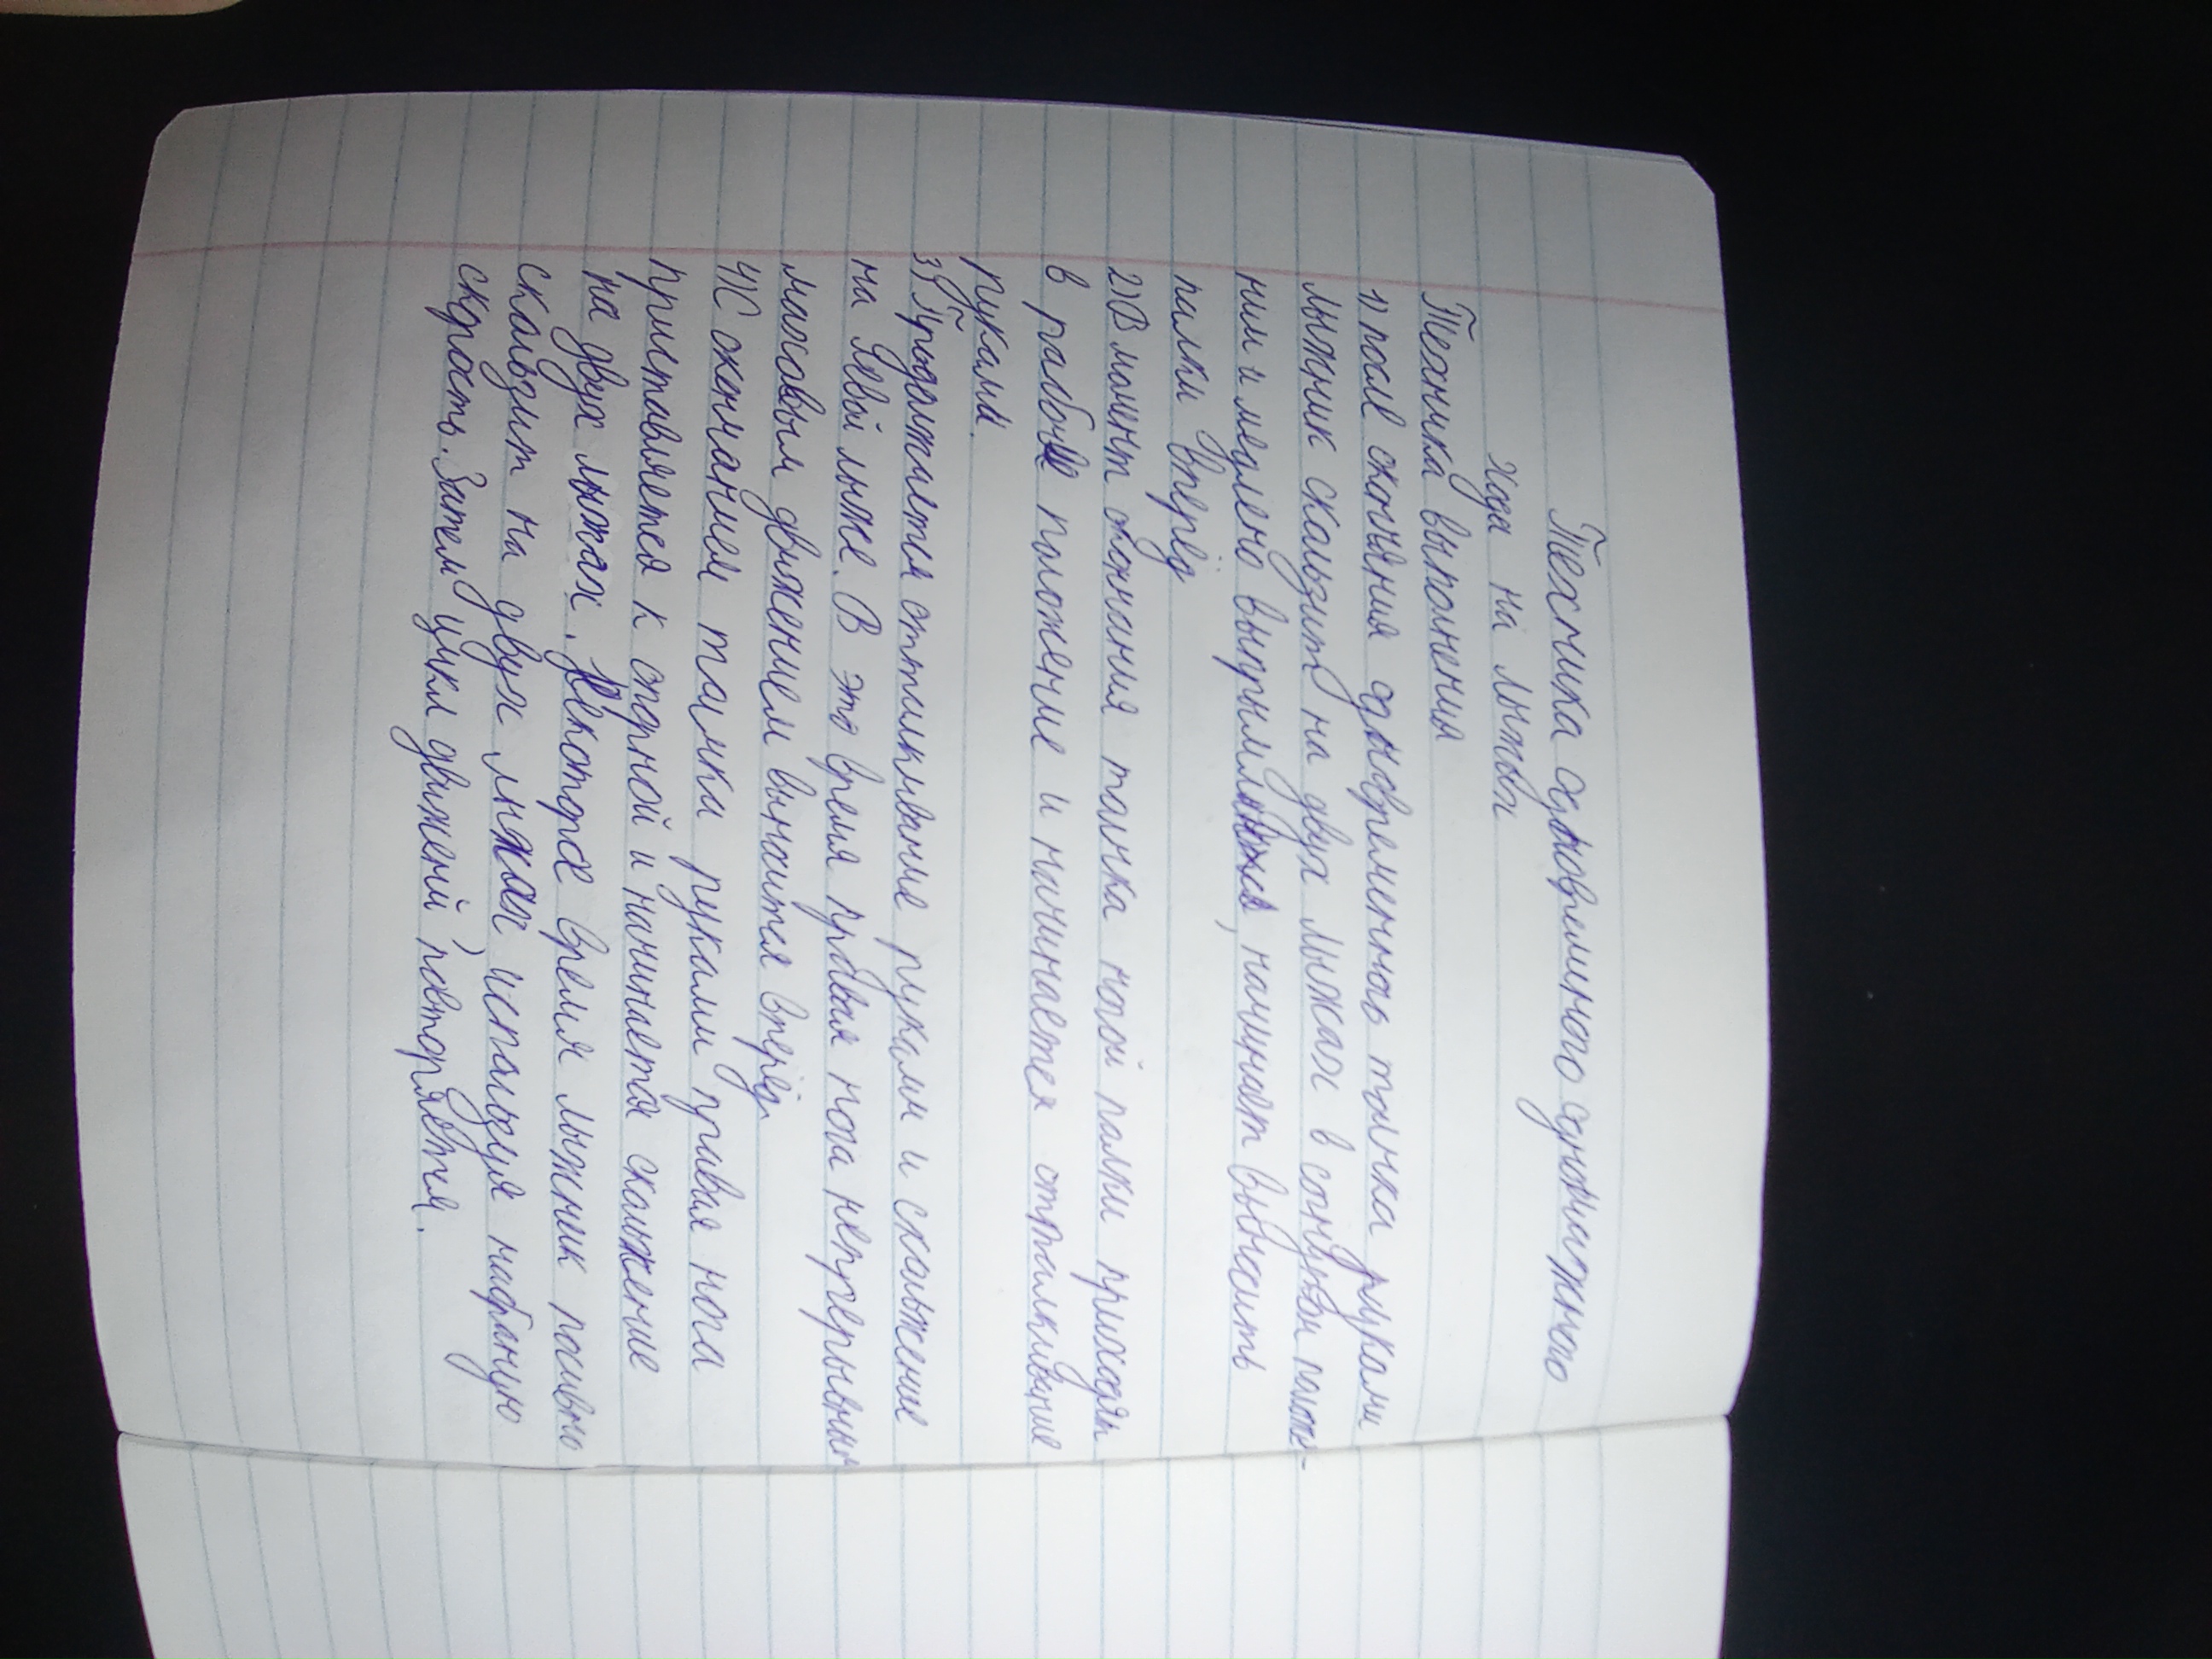 Техника одновременного одношажного
хода на лыжах
Техника выполнения
1) после окончания одновременнось толчка руками
лыжник скользит на двух лыжах в согнутом положе-
нии и медлено выпрямляясь, начинает выносить
палки вперёд
2) В момент окончания толчка ногой палки приходят
в рабочее положение и начинается отталкивание
руками.
3) Продолжается отталкивание руками и скольжение
на левой лыже. В это время правая нога непрерывным
маховым движением выносится вперёд.
4) С окончанием толчка руками правая нога
приставляется к опорной и начинается скольжение
на двух лыжах. Некоторое время лыжник пасивно
скользит на двух лыжах используя набраную
скорость. Затем цикл движений повторяется.